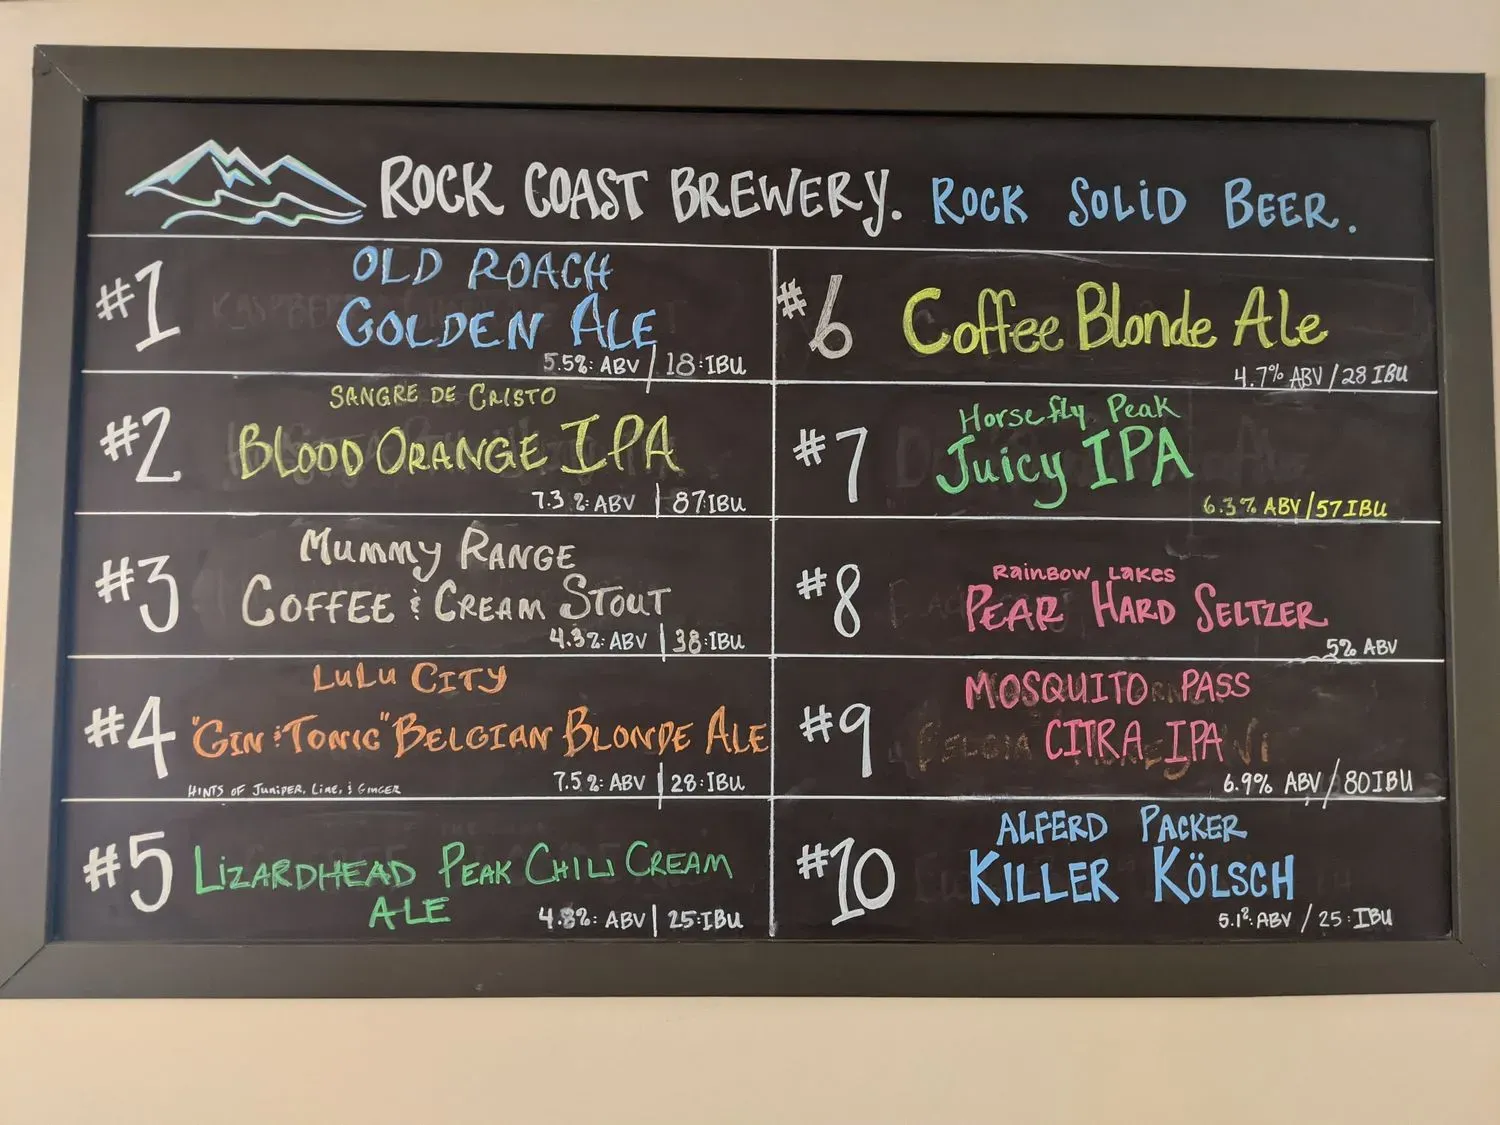 ROCK COAST BREWERY. ROCK SOLID BEER.
#1
OLD ROACH
GOLDEN ALE
5.5%: ABV / 18:IBU
#2
SANGRE DE CRISTO
BLOOD ORANGE IPA
7.3%: ABV | 87:IBU
#3
MUMMY RANGE
COFFEE & CREAM STOUT
4.3%: ABV | 38:IBU
#4
LULU CITY
"GIN & TONIC" BELGIAN BLONDE ALE
HINTS OF JUNIPER, LIME, & GINGER
7.5%: ABV | 28:IBU
#5
LIZARDHEAD PEAK CHILI CREAM
ALE
4.8%: ABV | 25:IBU
#6
Coffee Blonde Ale
4.7% ABV / 28 IBU
#7
Horsefly Peak
Juicy IPA
6.3% ABV / 57 IBU
#8
RAINBOW LAKES
PEAR HARD SELTZER
5% ABV
#9
MOSQUITO PASS
CITRA IPA
6.9% ABV / 80 IBU
#10
ALFERD PACKER
KILLER KÖLSCH
5.1%: ABV / 25:IBU